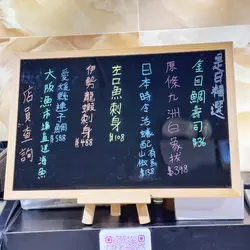 是日精選
金目鯛壽司 $36
原條九州白象拔 $398
日本時令海膽配有馬山椒 $138
左口魚刺身 $108
伊勢龍蝦刺身 $488
愛媛縣連子鯛 $588
大阪漁市場直送海魚
店員查詢